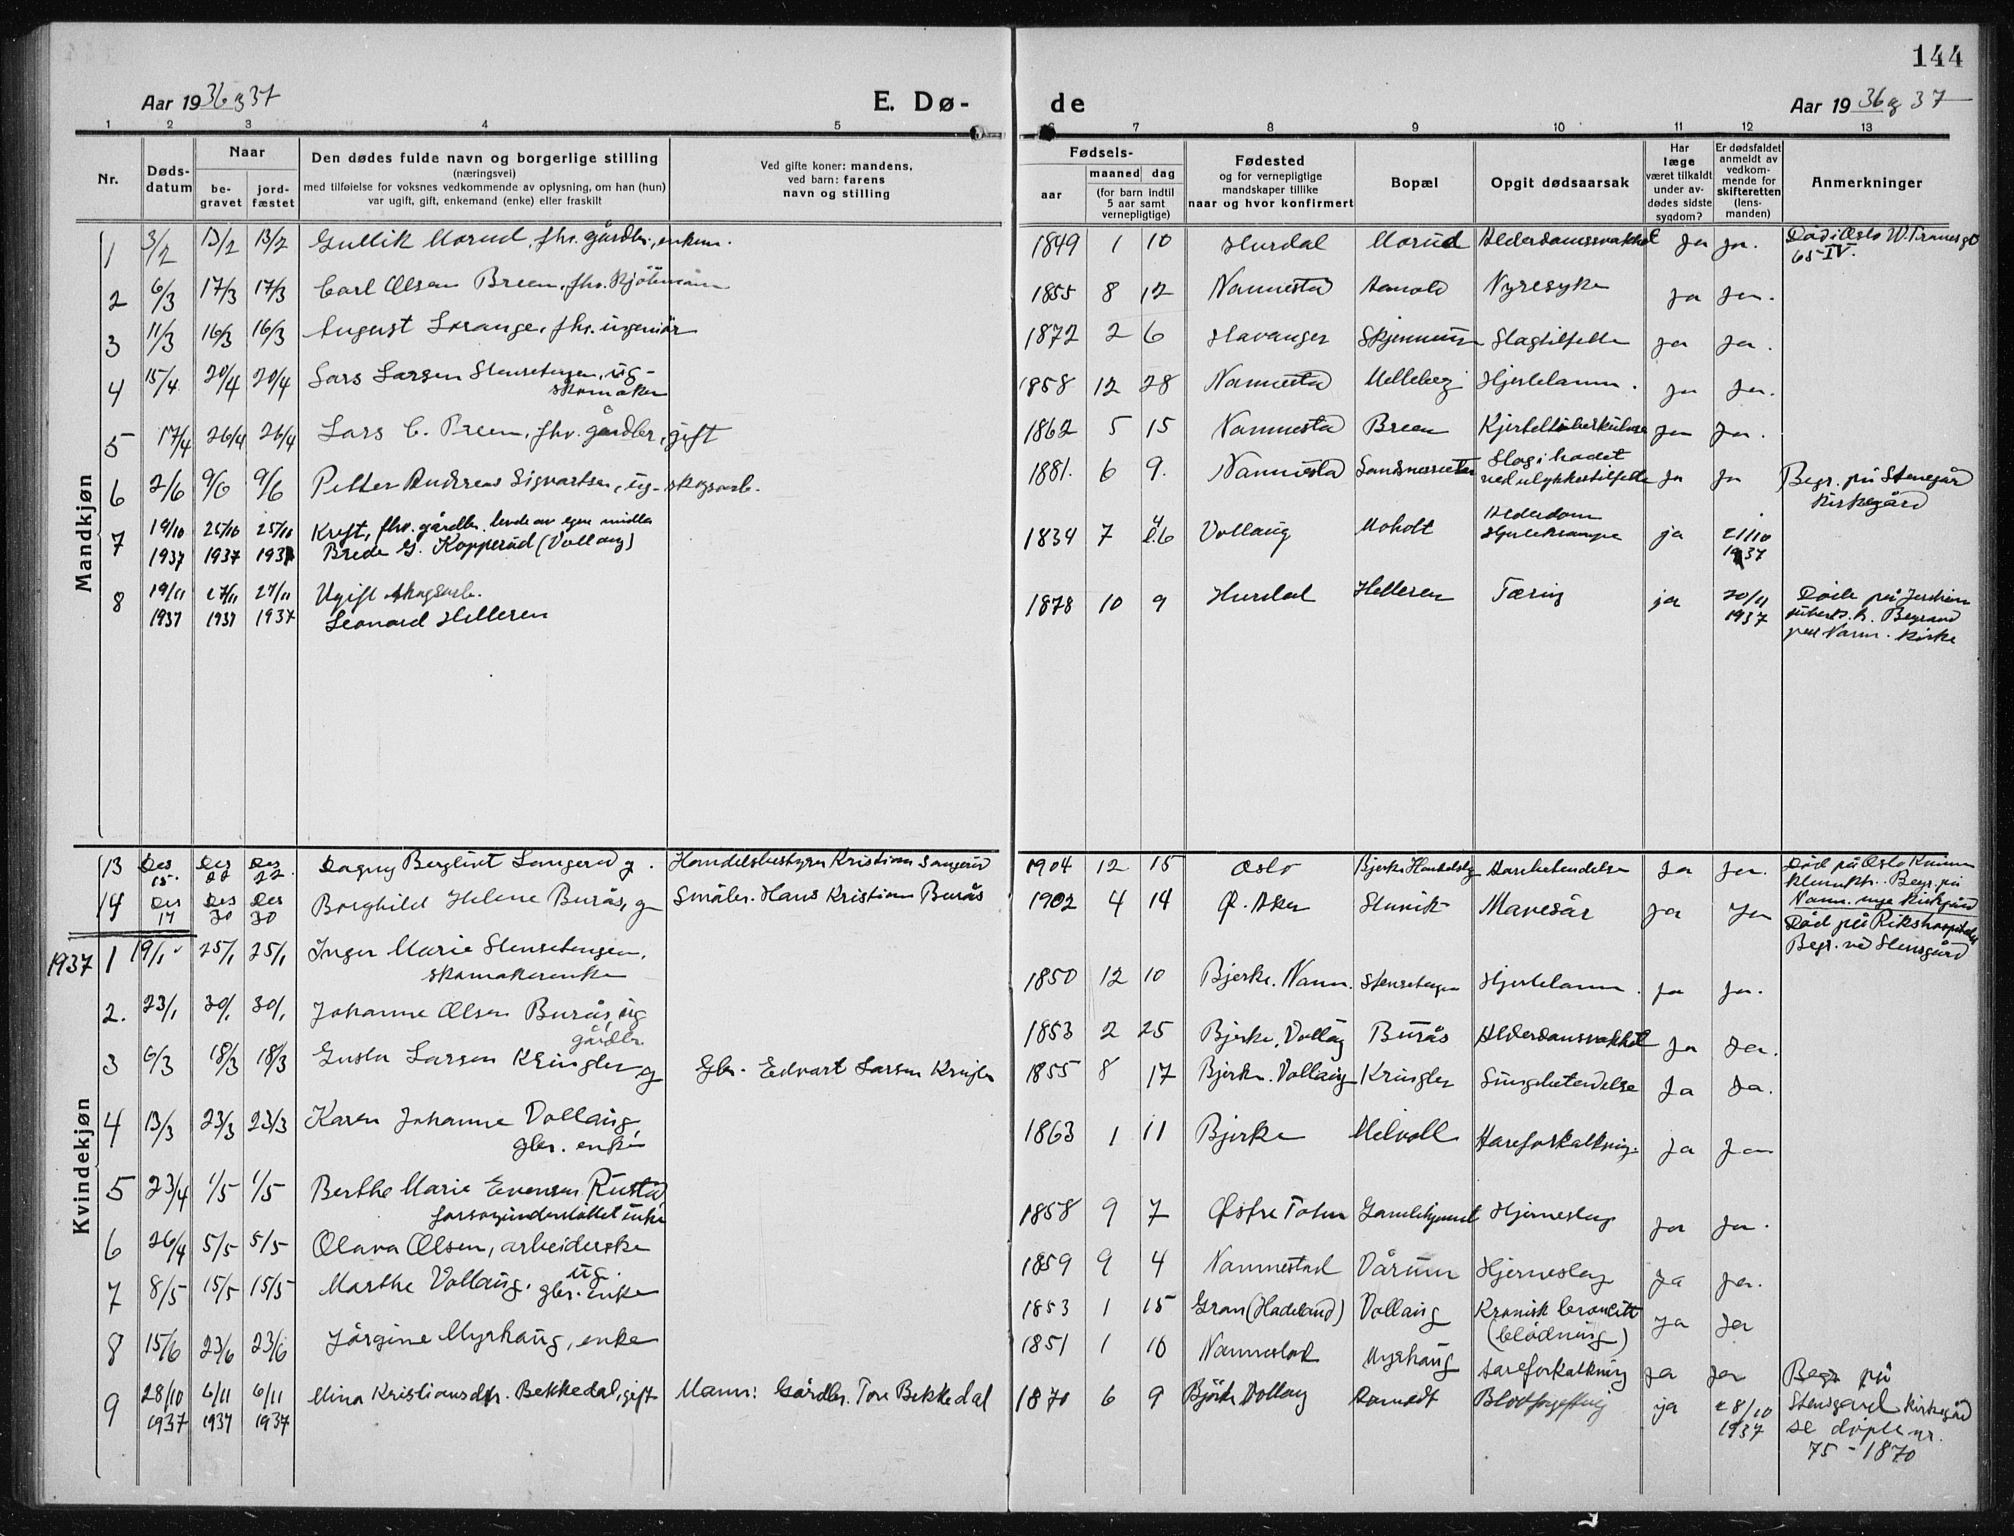 144
Aar 1936 og 37
E. Dø-
de
Aar 1936 og 37
1 2 3 4 5 6 7 8 9 10 11 12 13
Nr.
Døds-
datum
Naar
be-
gravet
jord-
fæstet
Den dødes fulde navn og borgerlige stilling
(næringsvei)
med tilføielse for voksnes vedkommende av oplysning, om han (hun)
var ugift, gift, enkemand (enke) eller fraskilt
Ved gifte koner: mandens,
ved barn: farens
navn og stilling
Fødsels-
aar
maaned dag
(for barn indtil
5 aar samt
vernepligtige)
Fødested
og for vernepligtige
mandskaper tillike
naar og hvor konfirmert
Bopæl
Opgit dødsaarsak
Har
læge
været tilkaldt
under av-
dødes sidste
sygdom?
Er dødsfaldet
anmeldt av
vedkom-
mende for
skifteretten
(lens-
manden)
Anmerkninger
Mandkjøn
1 3/2 13/2 13/2 Gullik Morud, fhv. gårdbr., enkem. 1849 1 10 Hurdal Morud Alderdomssvakhet Ja Ja. Død i Oslo W. Tranesgt
65 IV.
2 6/3 17/3 17/3 Carl Olsen Breen, fhv. kjöbmann 1855 8 12 Nannestad Aamodt Nyresyke Ja Ja.
3 11/3 16/3 16/3 August Lorange, fhv. ingeniör 1872 2 6 Stavanger Skjennum Slagtilfelle Ja Ja.
4 15/4 20/4 20/4 Lars Larsen Stensetengen, ug-
skomaker 1858 12 28 Nannestad Melleberg Hjertelamm. Ja Ja.
5 17/4 26/4 26/4 Lars C. Breen, fhv. gårdbr., gift 1862 5 15 Nannestad Breen Kjerteltuberkulose Ja Ja.
6 2/6 9/6 9/6 Petter Andreas Sigvartsen, ug- skogsarb. 1881. 6 9. Nannestad Slag i hodet
ved ulykkestilfelle Ja Ja Begr. på Stenegård
kirkegård
7 19/10 25/10 25/10 Kryft, fhv. gårdbr. levde av egne midler
1937 1937 1937 Brede G. Kopperud (Vollaug) 1834 7 26 Vollaug Moholt Alderdom
Hjertekrampe ja 21/10
1937
8 19/11 27/11 27/11 Ugift skogsarb.
1937 1937 1937 Leonard Helleren 1878 10 9 Hurdal Helleren Tæring ja 20/11
1937 Døde på Jessheim
tuberk. h. Begravd
ved Nann. kirke
Kvindekjøn
13 Des 15. Des 22 Des 22. Dagny Bergliot Sangerud g. Handelsbestyrer Kristian Sangerud 1904 12 15 Oslo Bjerke Handelslag Aarebetendelse Ja Ja. Død på Oslo Kvinne
klinikk. Begr. på
Nann. nye kirkegård
14 Des 17 Des 30 Des 30 Borghild Helene Burås, g Småbr. Hans Kristian Burås 1902 4 14 Ø. Aker Stuvik Mavesår Ja Ja Død på Rikshospitalet
Begr. ved Stensgård
1937 1 19/1 25/1 25/1 Inger Marie Stensetengen,
skomakerenke 1850 12 10 Bjerke. Nann. Stensetengen Hjertelamm. Ja Ja.
2. 23/1 30/1 30/1 Johanne Olsen Burås, ug 1853 2 25 Bjerke, Vollaug Burås Alderdomssvakhet Ja Ja.
gårdbr.
3 6/3 18/3 18/3 Gusta Larsen Kringler g Gbr. Edvart Larsen Kringler 1855 8 17 Bjerke. Vollaug Kringler Lungebetendelse Ja Ja.
4 13/3 23/3 23/3 Karen Johanne Vollaug,
gbr. enke 1863 1 11 Bjerke Melvoll Aareforkalkning. Ja Ja
5 23/4 1/5 1/5 Berthe Marie Evensen Rustad
forsorgsunderstøttet enke 1858 9 7 Østre Toten Gamlehjemmet Hjerneslag Ja Ja.
6 26/4 5/5 5/5 Olava Olsen, arbeiderske
ug. 1859 9 4 Nannestad Vårum Hjerneslag Ja Ja.
7 8/5 15/5 15/5 Marthe Vollaug. gbr. enke 1853 1 15 Gran (Hadeland) Vollaug Kronisk broncitt
(blödning) Ja Ja
8 15/6 23/6 23/6 Jörgine Myrhaug, enke 1851 1 10 Nannestad Myrhaug Aareforkalkning Ja Ja
9 28/10 6/11 6/11 Mina Kristiansdtr. Bekkedal, gift Mann: Gårdbr. Tore Bekkedal 1870 6 9 Björke Vollaug Aamodt Blodforgiftning ja 28/10
1937 1937 1937 1937 Begr. på
Stensgård kirkegård
se döpte nr.
75 - 1870